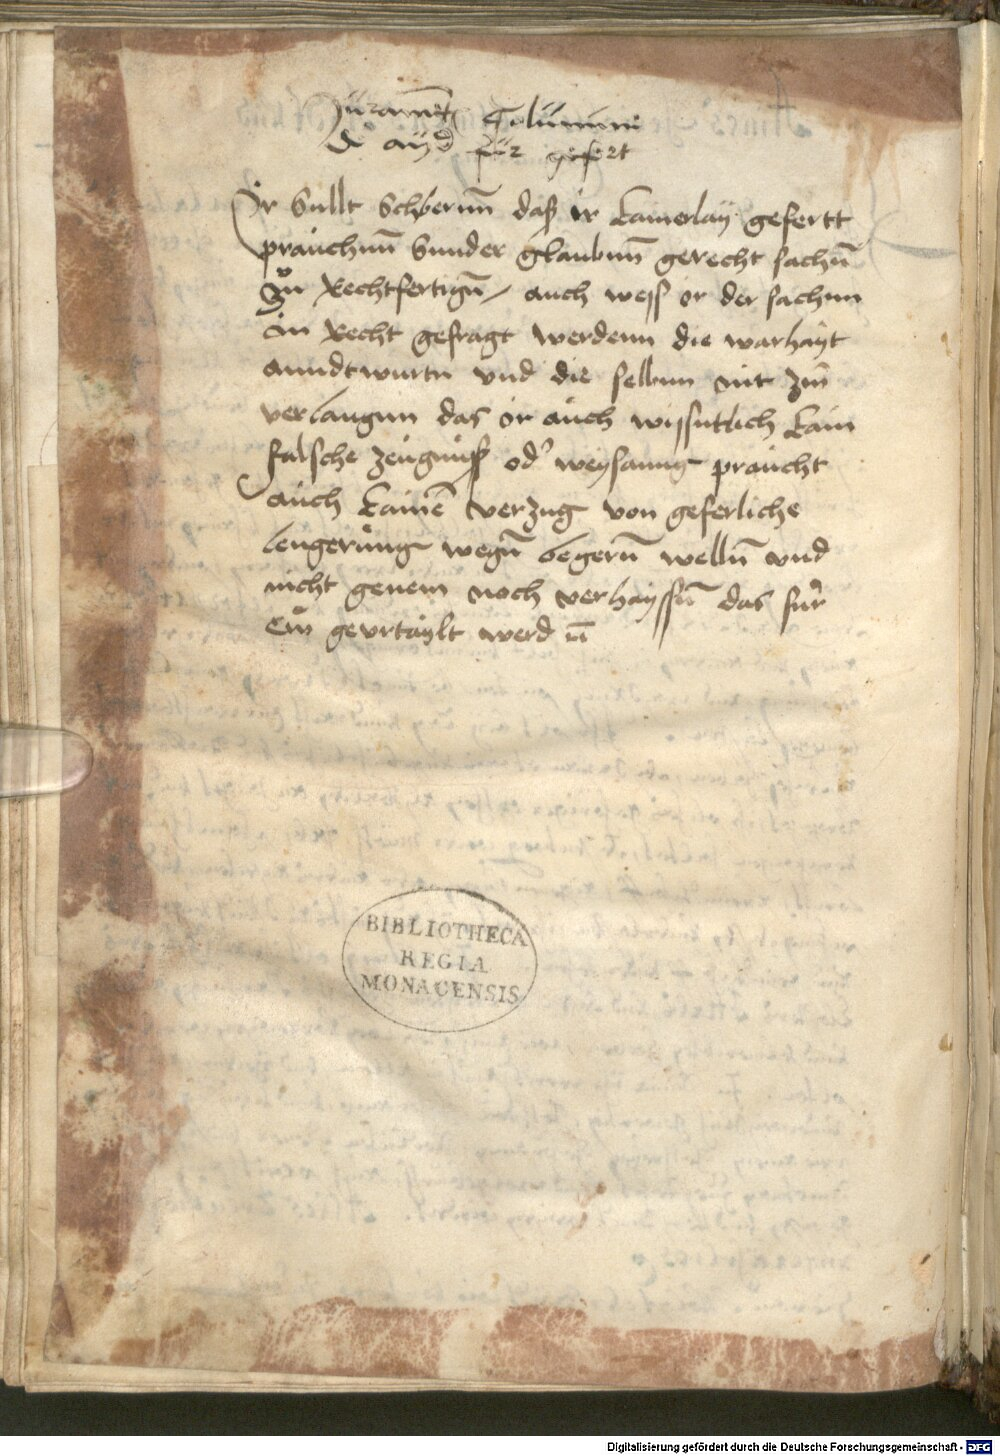 Jurament Columnie
De ayd für gefert
Ir sullt schberun daß ir kainerlay gefertt
prauchnn sunder glaubnn gerecht sachn̄
zu Rechtfertign̄ / auch wess ir der sachnn
in Recht gefragt werdenn die warhayt
anndtwurtn vnd die selbnn nit zw̄
verlaugnn das ir auch wissntlich kain
falsche zeugnuß od' weysaung praucht
auch kainē verzug von geferliche
lengerung wegn̄ begern̄ welln̄ vnd
nicht geuem noch verhayssn̄ das für
ein gevrtaylt werd n̄
BIBLIOTHECA
REGIA
MONACENSIS
Digitalisierung gefördert durch die Deutsche Forschungsgemeinschaft - DFG